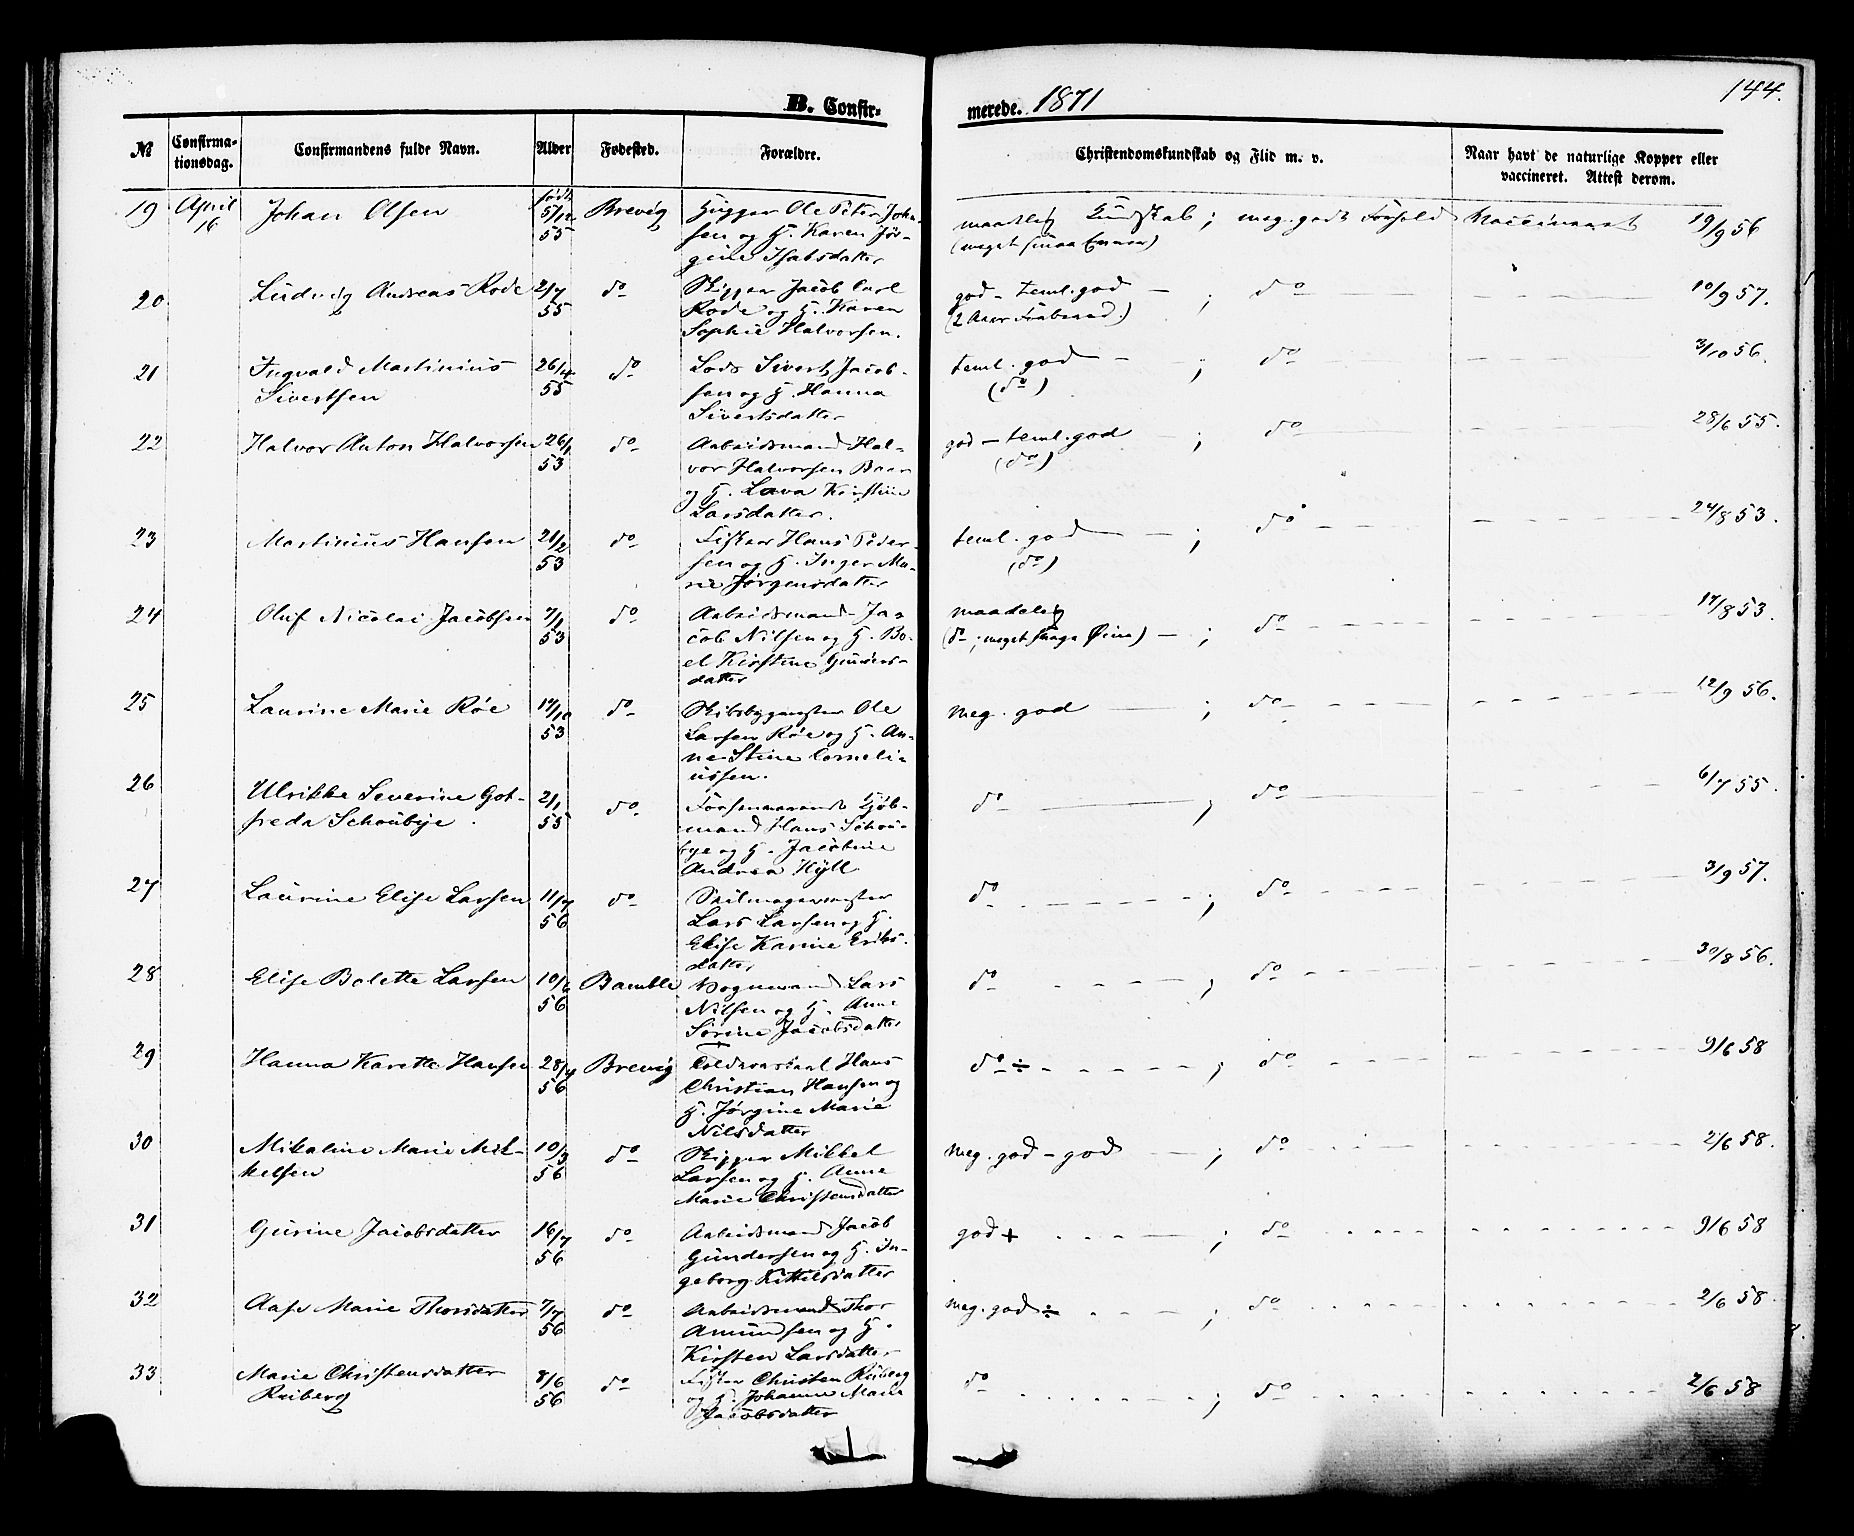 144.
B. Confir-
merede. 1871
№
Confirma-
tionsdag.
Confirmandens fulde Navn.
Alder
Fødested.
Forældre.
Christendomskundskab og Flid m. v.
Naar havt de naturlige Kopper eller
vaccineret. Attest derom.
19 April 16 Johan Olsen født 5/12 55 Brevig
Ole Peter John-
sen og H. Karen Jør-
gine Isaksdatter
maadelig Kundskab; meg. godt Forhold
(meget smaa Evner)
Vaccineret 19/9 56
20 Ludvig Andreas Rode 2/7 55 do
Skipper Jacob Carl
Rode og H. Karen
Sophie Halvorsen.
god - teml. god - ; do
10/9 57.
21 Ingvald Martinius
Sivertsen 26/4 55 do
Lods Sivert Jacob-
sen og H. Hanna
Sivertsdatter
teml. god - ; do
(do)
3/10 56.
22 Halvor Anton Halvorsen 26/1 53 do
Arbeidsmand Hal-
vor Halvorsen
og H. Kirstine
Larsdatter.
god - teml. god - ; do
(do)
28/6 55.
23 Martinius Hansen 21/2 53 do
Fisker Hans Peder-
sen og H. Inger Ma-
rie Jørgensdatter
teml. god - ; do
(do)
24/8 53.
24 Oluf Nicolai Jacobsen 7/2 53 do
Arbeidsmand Ja-
cob Nilsen og H. Bo-
el Kirstine Gunders-
datter
maadelig
(do; meget svage Øine) - ; do
17/8 53.
25 Laurine Marie Røe 17/10 53 do
Skibsbygmester Ole
Larsen Røe og H. An-
ne Stine Corneli-
ussen.
meg. god ; do
12/9 56.
26 Ulrikke Severine Got-
freda Schoubye 2/1 55 do
Forhenværende Kjøb-
mand Hans Schou-
bye og H. Jacobine
Andrea Hÿll
do ; do
6/7 55.
27 Laurine Elise Larsen 11/7 56 do
Seilmagermester
Lars Larsen og H.
Elise Karine Eriks-
datter
do ; do
3/9 57.
28 Elise Bolette Larsen 10/6 56 Bamble
Vognmand Lars
Nilsen og H. Anne
Sørine Jacobsdatter
do ; do
30/8 56.
29 Hanna Karette Hansen 28/7 56 Brevig
Hans
Christian Hansen og
H. Jørgine Marie
Nilsdatter
do ÷ ; do
9/6 58
30 Mikaline Marie Mik-
kelsen 10/3 56 do
Skipper Mikkel
Larsen og H. Anne
Marie Christensdatter
meg. god - god ; do
2/6 58.
31 Gurine Jacobsdatter 16/7 56 do
Arbeidsmand Jacob
Gundersen og H. In-
geborg Kittilsdatter
god + ; do
9/6 58
32 Aase Marie Thorsdatter 7/7 56 do
Arbeidsmand Thor
Amundsen og H.
Kirsten Larsdatter
meg. god ÷ ; do
2/6 58.
33 Marie Christensdatter
Riiberg 8/6 56 do
Fisker Christen Riiberg
og H. Johanne Marie
Jacobsdatter
do ; do
2/6 58